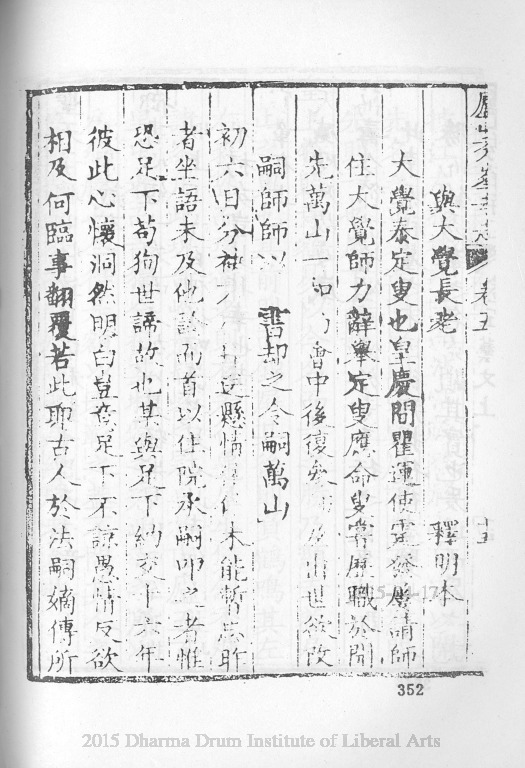 卷五
十五
與大覺長老 釋明本
大覺泰定叟也皇慶間瞿運使霆發屢請師
住大覺師力辭舉定叟應命叟嘗歷職於開
先萬山會中後復 出世欲改
嗣師師以書却之令嗣萬山
初六日分 懸情 未能暫忘昨
者坐語未及他談而首以住院承嗣叩之者惟
恐足下苟徇世諦故也某與足下納交十六年
彼此心懷洞然明白豈意足下不諒愚情反欲
相及何臨事翻覆若此耶古人於法嗣嫡傳所
352
2015 Dharma Drum Institute of Liberal Arts